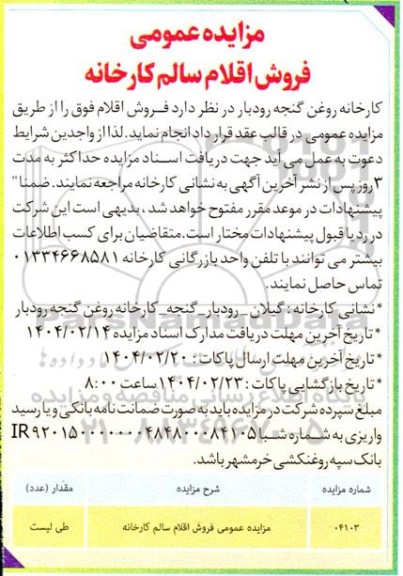 مزایده عمومی
فروش اقلام سالم کارخانه
کارخانه روغن گنجه رودبار در نظر دارد فروش اقلام فوق را از طریق
مزایده عمومی در قالب عقد قرار داد انجام نماید. لذا از واجدین شرایط
دعوت به عمل می آید جهت دریافت اسناد مزایده حداکثر به مدت
۳ روز پس از نشر آخرین آگهی به نشانی کارخانه مراجعه نمایند. ضمنا"
پیشنهادات در موعد مقرر مفتوح خواهد شد ، بدیهی است این شرکت
در رد یا قبول پیشنهادات مختار است. متقاضیان برای کسب اطلاعات
بیشتر می توانند با تلفن واحد بازرگانی کارخانه ۰۱۳۳۴۶۶۸۵۸۱
تماس حاصل نمایند.
* نشانی کارخانه : گیلان _ رودبار_ گنجه _ کارخانه روغن گنجه رودبار
* تاریخ آخرین مهلت دریافت مدارک اسناد مزایده ۱۴۰۴/۰۲/۱۴
* تاریخ آخرین مهلت ارسال پاکات : ۱۴۰۴/۰۲/۲۰
* تاریخ بازگشایی پاکات : ۱۴۰۴/۰۲/۲۳ ساعت ۸:۰۰
مبلغ سپرده شرکت در مزایده باید به صورت ضمانت نامه بانکی و یا رسید
واریزی به شماره شبا IR ۹۲۰۱۵۰۰۰۰۰۰۰۴۸۴۸۰۰۸۴۱۰۵
بانک سپه روغنکشی خرمشهر باشد.
شماره مزایده شرح مزایده مقدار (عدد)
۰۴۱۰۳ مزایده عمومی فروش اقلام سالم کارخانه طی لیست